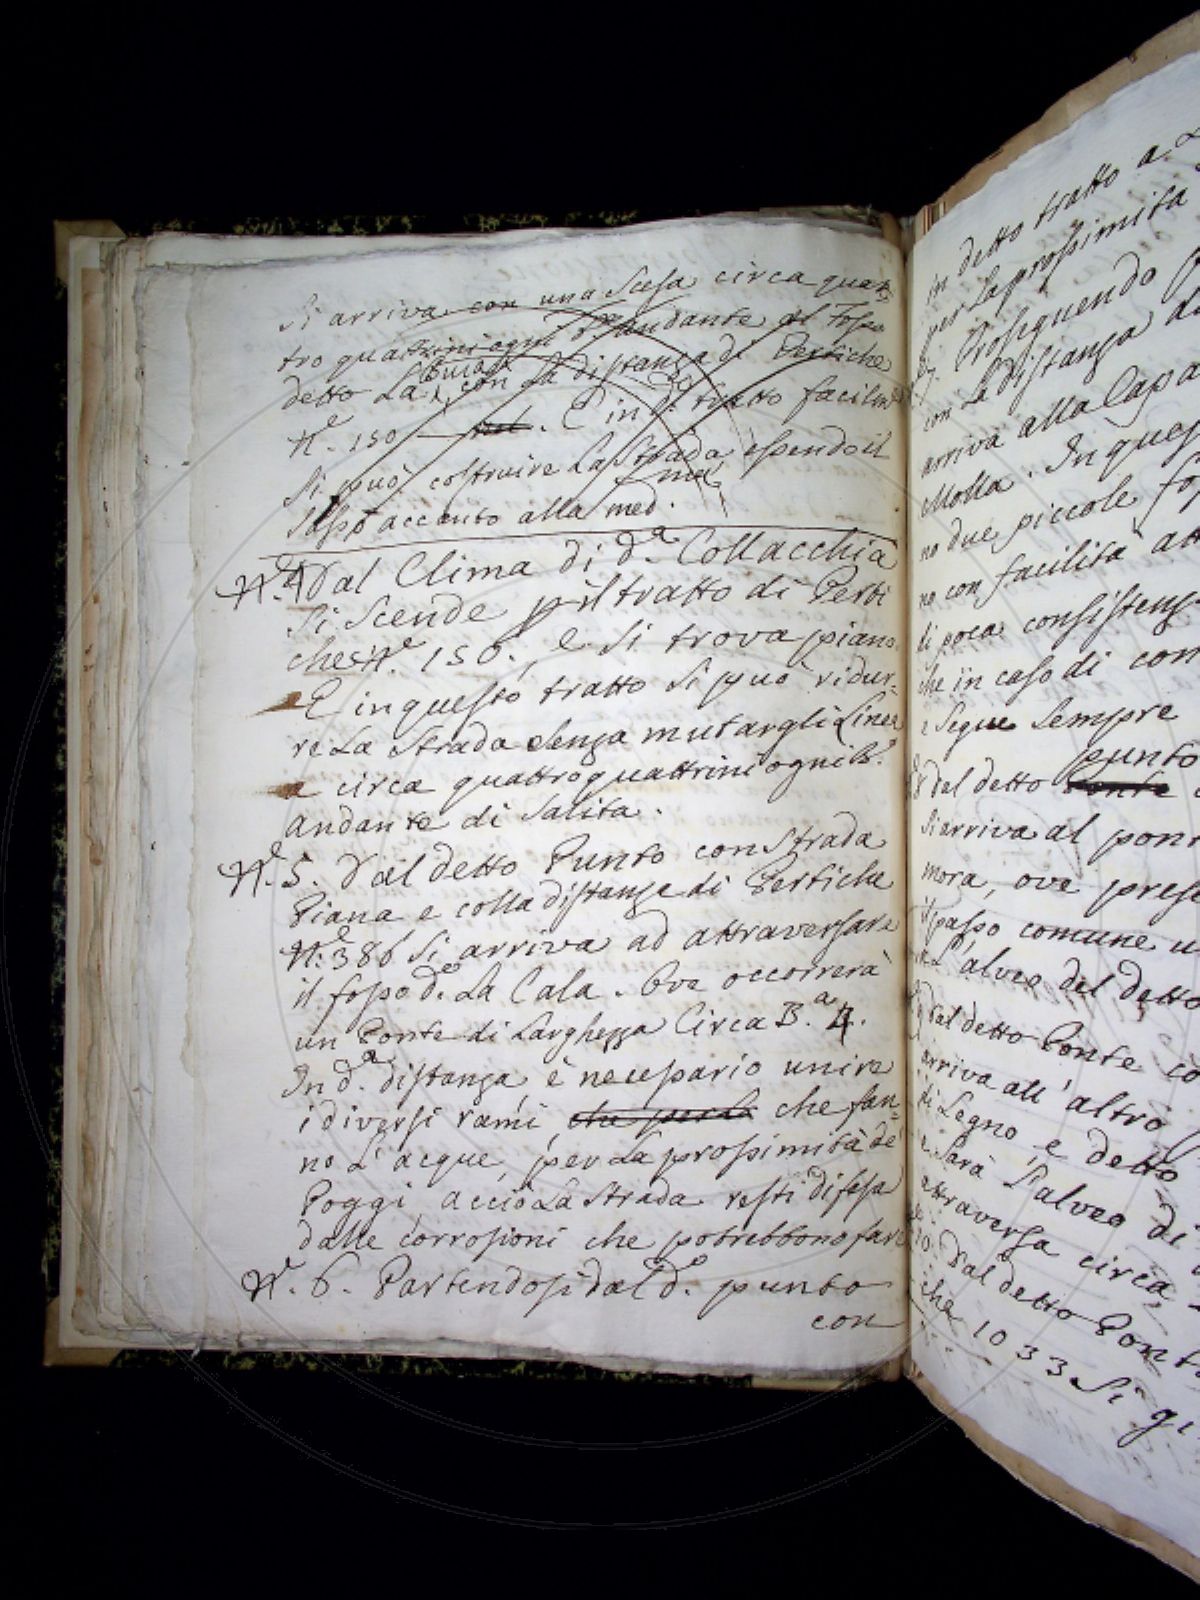 Si arriva con una Scesa circa quat
tro quattrini ogni Bo andante al Fosso
detto La Buia con La distanza di Pertiche
No. 150 E in do. tratto facilm
Si può costruire La Strada essendo il
Sasso accanto alla med.ma
No. 4 Dal Clima di d.a Collacchia
Si Scende p il tratto di Perti
che No. 150., e Si trova piano.
E in questo tratto Si può ridur=
re La Strada Senza mutargli Linea
a circa quattro quattrini ogni B.o
andante di Salita.
No. 5. Dal detto Punto con Strada
Piana e colla distanza di Pertiche
No. 386 Si arriva ad attraversare
il fosso do. La Cala. Ove occorrerà
un Ponte di Larghezza Circa B.a 4.
In d.a distanza è necessario unire
i diversi rami che per la che fan=
no L'acque, per La prossimità de
Poggi, acciò La Strada resti difesa
dalle corrosioni che potrebbono fare
No. 6. Partendosi dal do. punto
con
in detto tratto a
per La prossimita
Proseguendo
con La distanza
arriva alla Capa
Molla. In ques
no due piccole fos
no con facilità att
di poca consistenz
che in caso di con
e Segue Sempre
punto
del detto Ponte
Si arriva al pon
mora, ove prese
il passo comune u
L'alveo del detto
Dal detto Ponte co
arriva all'altro
di Legno e detto
e Sarà L'alveo di
attraversa circa
Dal detto Pont
che 1033 Si gi